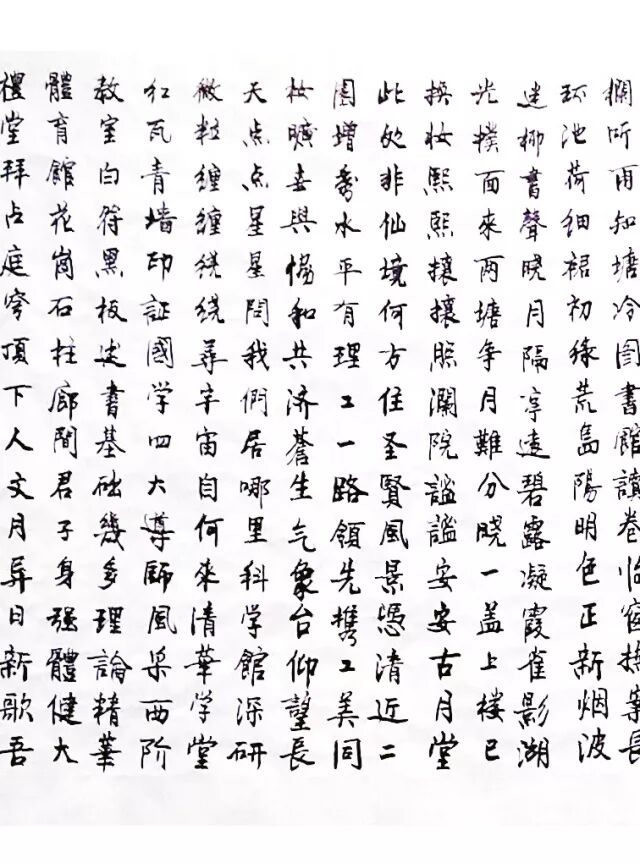 欄听雨知塘冷图書館讀卷临窗業長
环池荷细裙初缘荒島陽明色正新烟波
迷柳書聲晓月隔亭遠碧露凝霞雀影湖
光撲面來两塘争月難分晓一盖上楼已
换妆熙熙攘攘照瀾院謐謐安安古月堂
此处非仙境何方住圣賢風景憑清近二
園增秀水平有理工一路領先携工美同
妆曠喜與協和共济蒼生气象台仰望長
天点点星星問我們居哪里科学館深研
微粒纏纏绕绕尋宇宙自何來清華学堂
红瓦青墙印証國学四大導師風采西阶
教室白符黑板述書基础幾多理論精華
體育館花崗石柱廊間君子身强體健大
禮堂拜占庭穹頂下人文月异日新歌吾